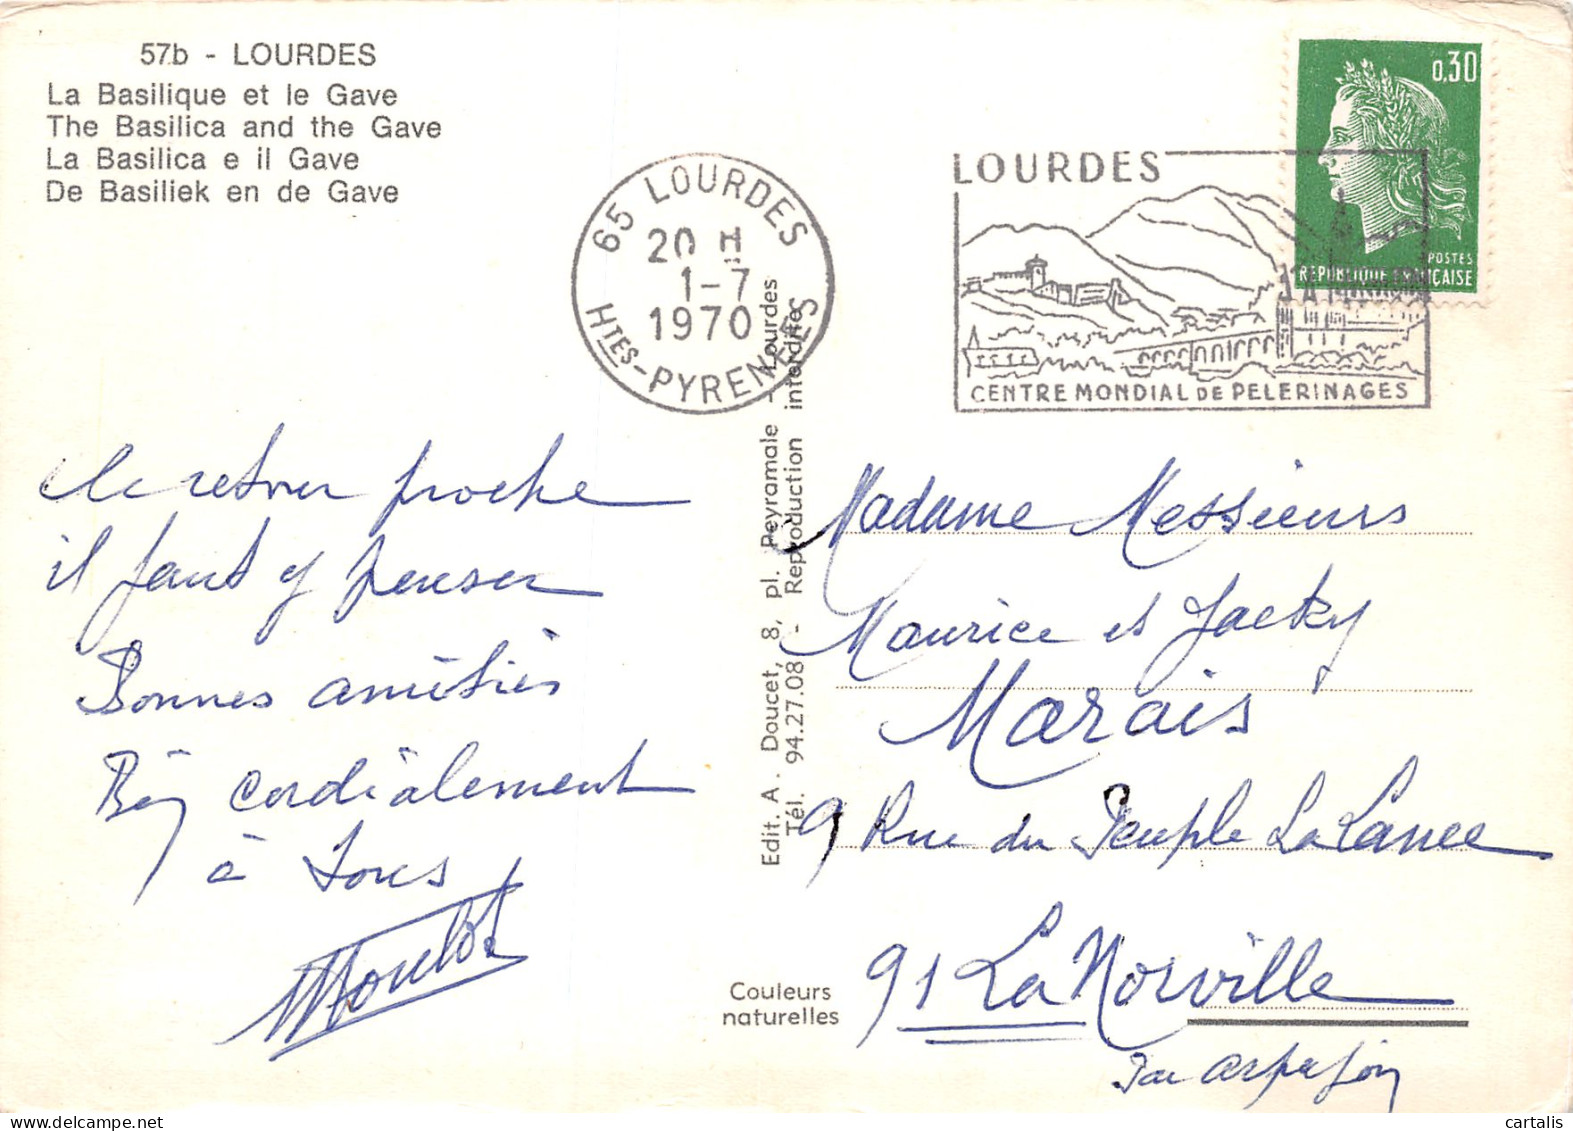 57b - LOURDES
La Basilique et le Gave
The Basilica and the Gave
La Basilica e il Gave
De Basiliek en de Gave
65 LOURDES
20 H
1-7
1970
Htes-PYRENEES
LOURDES
CENTRE MONDIAL DE PELERINAGES
0,30
POSTES
REPUBLIQUE FRANÇAISE
Le retour proche
il faut y penser
Bonnes amitiés
Bien cordialement
à tous
Edit. A. Doucet, 8, pl. Peyramale - Lourdes
Tél. 94.27.08 - Reproduction interdite
Couleurs
naturelles
Madame Messieurs
Maurice et Jacky
Marais
9 Rue du Peuple La Lance
91 La Norville
Par Arpajon
cartalis
www.delcampe.net